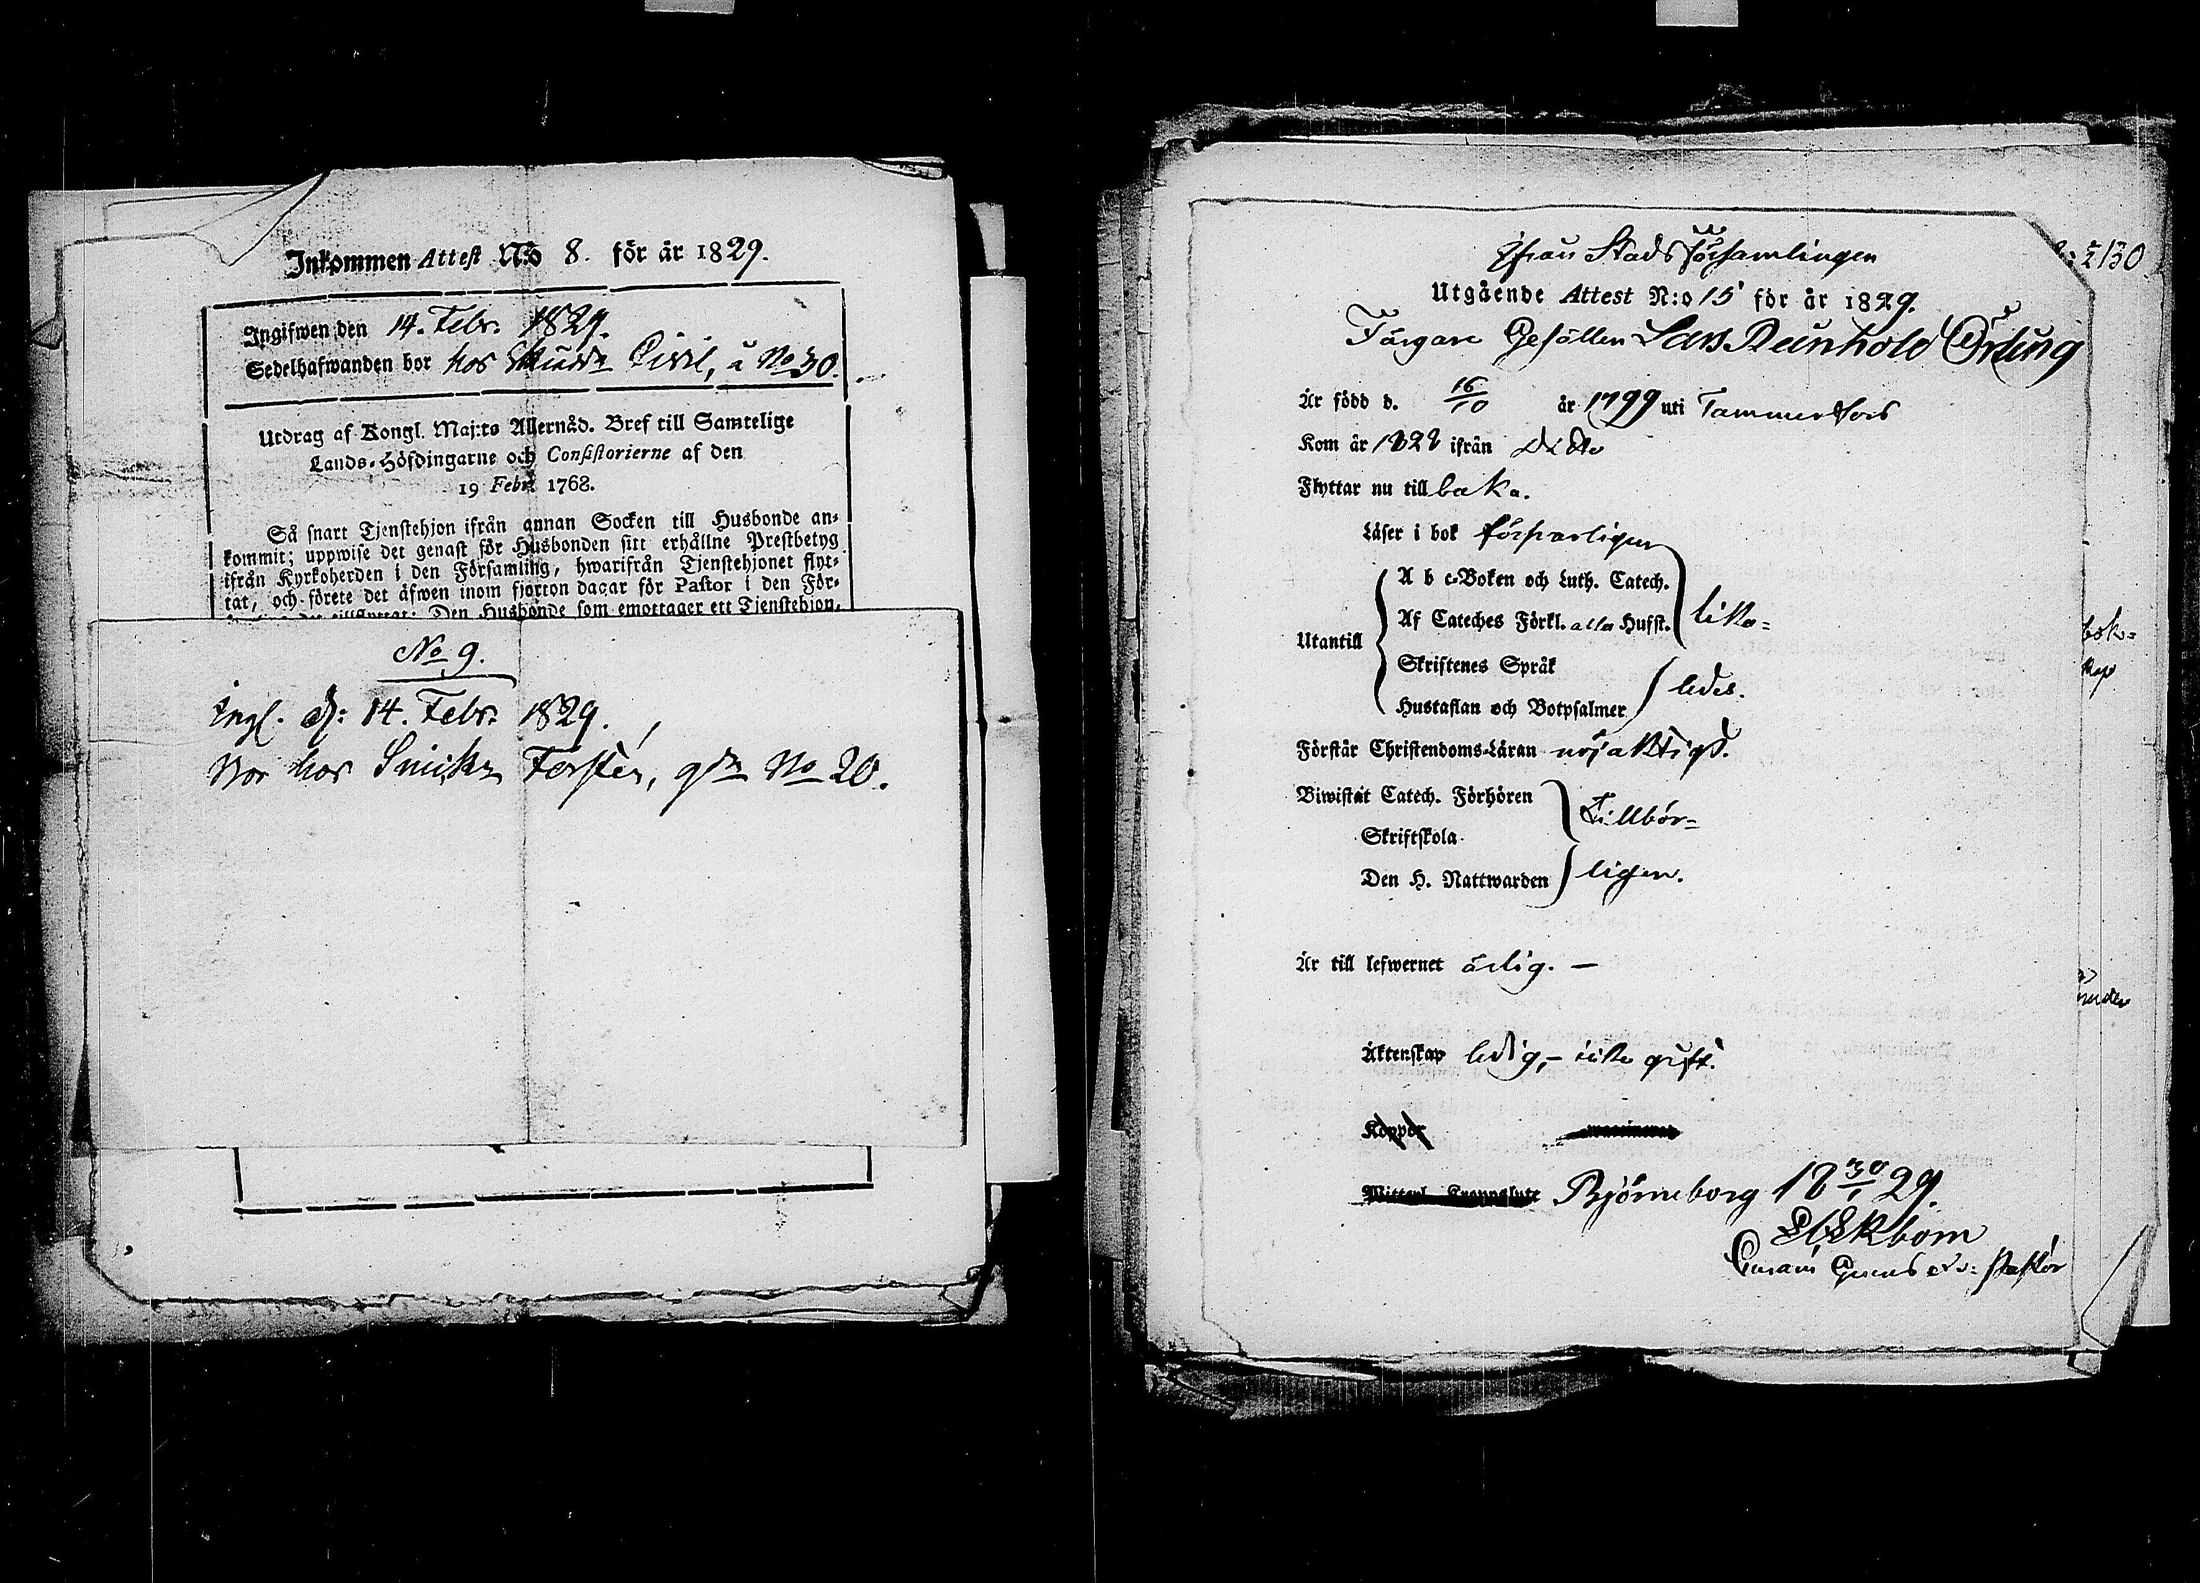 Inkommen Attest N:o 8. för år 1829.
Ingifwen den 14. Febr. 1829.
Sedelhafwanden bor hos Civil, å No 30.
Utdrag af Kongl. Maj:ts Allernåd. Bref till Samtelige
Lands-Höfdingarne och Consistorierne af den
19 Febr. 1768.
Så snart Tjenstehjon ifrån annan Socken till Husbonde an-
kommit; uppwise det genast för Husbonden sitt erhållne Prestbetyg
ifrån Kyrkoherden i den Församling, hwarifrån Tjenstehjonet flyt-
tat, och förete det äfwen inom fjorton dagar för Pastor i den För-
Den Husbonde som emottager ett Tjenstehjon,
No 9.
Ingl. d: 14. Febr. 1829.
Bor hos Snick: Forstén, No 20.
ifrån Stadsförsamlingen
Utgående Attest N:o 15 för år 1829.
Färgare Gesällen Lars Reinhold Örling
Är född d. 16/10 år 1799 uti Tammerfors
Kom år 1828 ifrån dito
Flyttar nu tillbaka.
Läser i bok försvarligen
A b c-Boken och Luth. Catech.
Af Cateches Förkl. alla Hufst. lika-
Utantill
Skriftenes Språk
Hustaflan och Botpsalmer ledes.
Förstår Christendoms-Läran nöjaktigt.
Biwistat Catech. Förhören Tillbör-
Skriftskola
Den H. Nattwarden ligen.
Är till lefwernet ärlig. —
Äktenskap ledig, - icke gift.
Koppor
Björneborg 18 30/1 29.
Ekbom